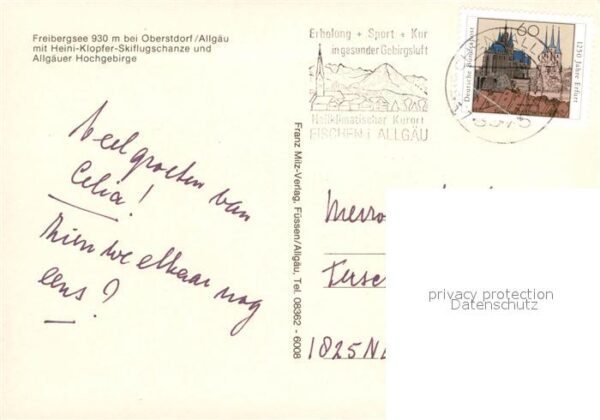 Freibergsee 930 m bei Oberstdorf/Allgäu
mit Heini-Klopfer-Skiflugschanze und
Allgäuer Hochgebirge
Erholung + Sport + Kur
in gesunder Gebirgsluft
Heilklimatischer Kurort
FISCHEN i. ALLGÄU
60
Deutsche Bundespost
1250 Jahre Erfurt
Veel groeten van
Celia!
Zien we elkaar nog
eens?
Franz Milz-Verlag, Füssen/Allgäu, Tel. 08362 - 6008
1825
privacy protection
Datenschutz